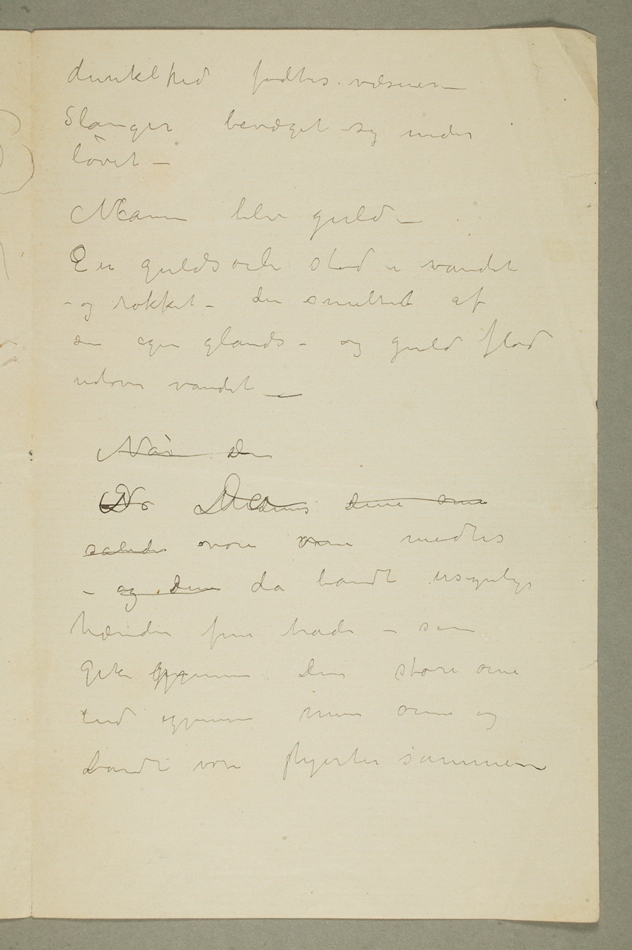 dunkelhed fødtes væsener –
Slanger bevæget sig under
løvet –
Månen blev guld –
En guldsøile stod i vandet
– og rokket – den smeltet af
sin egen glands – og guld flød
udover vandet –
Når din
Når Deres dine øine
saledes vore øine mødtes
– og dine da bandt usynlige
hænder fine tråde – som
gik gjennem dine store øine
ind gjennem mine øine og
bandt vore hjerter sammen